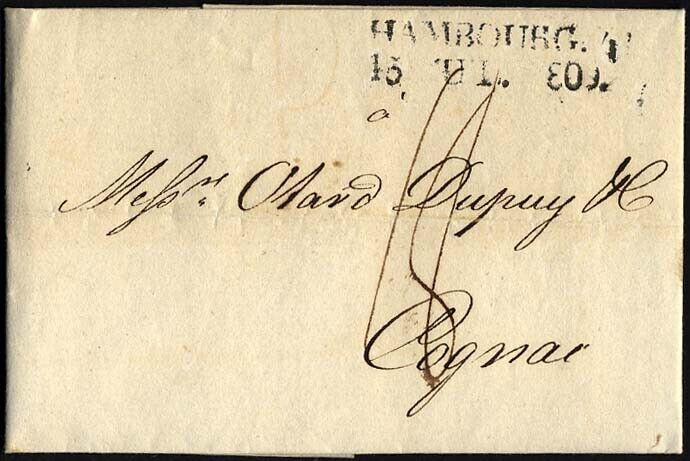 HAMBOURG.
15 JUL. 809.
a
Messrs Otard Dupuy & C
Cognac